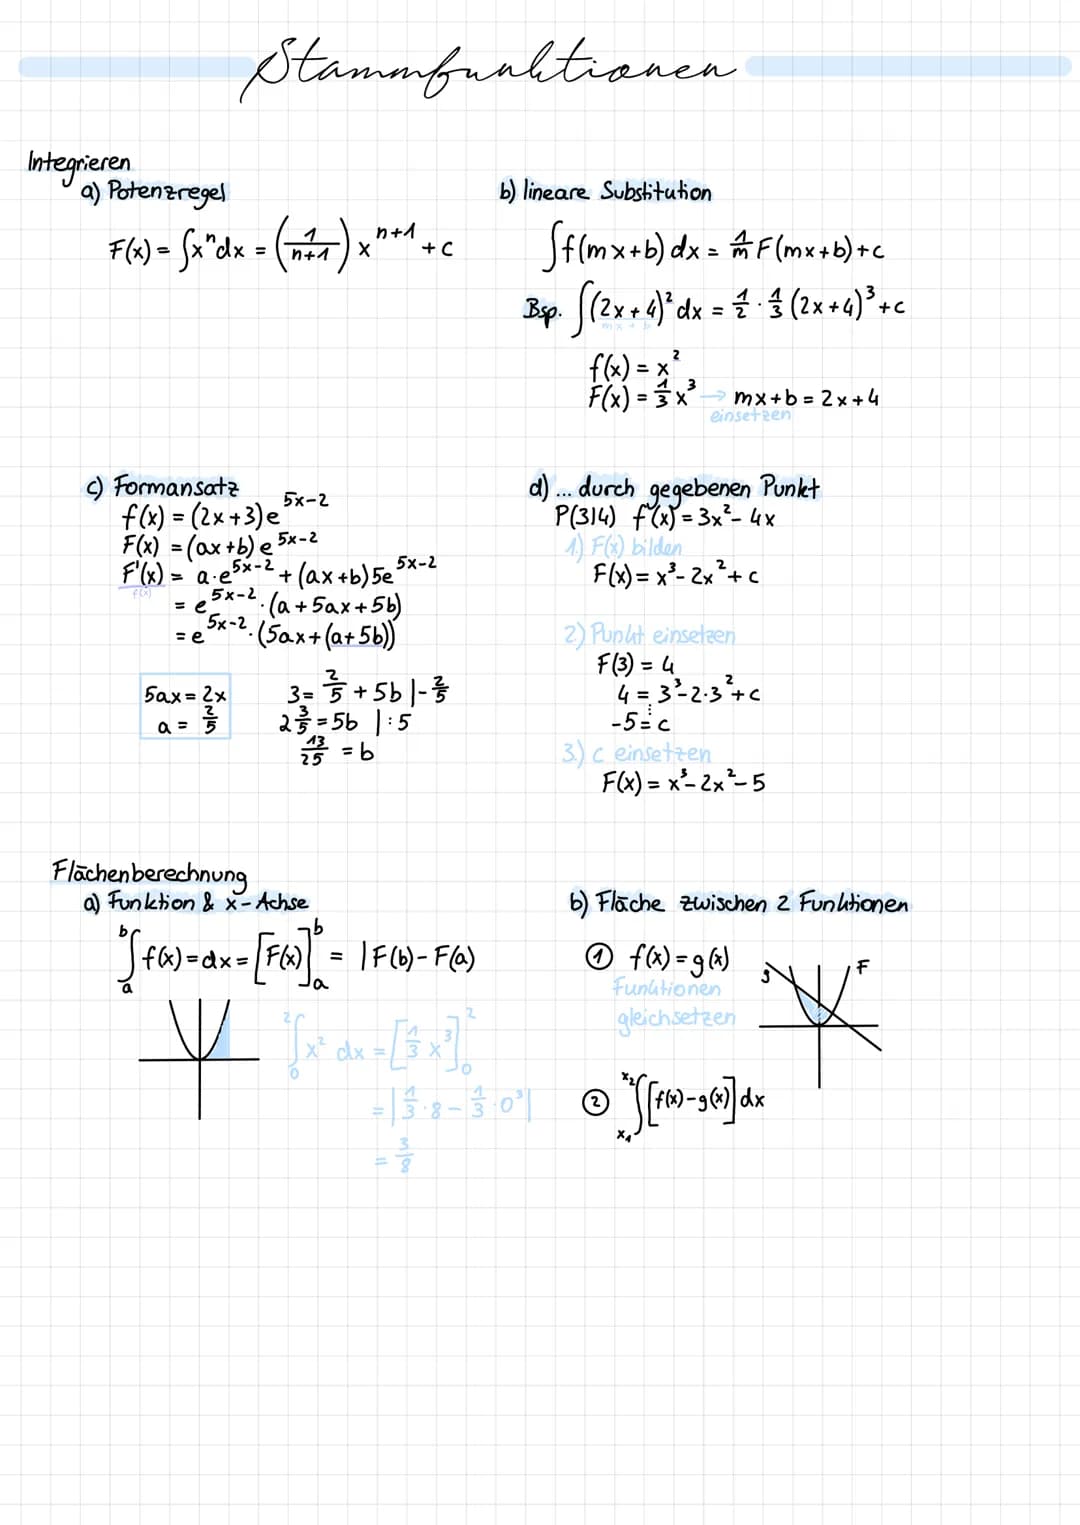 Stammfunktionen
Integrieren
a) Potenzregel
F(x) = ∫xⁿdx = (1/(n+1)) xⁿ⁺¹ + c
b) lineare Substitution
∫f(mx+b) dx = 1/m F(mx+b)+c
Bsp. ∫(2x+4)² dx = 1/2 · 1/3 (2x+4)³+c
mx + b
f(x) = x²
F(x) = 1/3 x³ → mx+b = 2x+4
einsetzen
c) Formansatz
f(x) = (2x+3)e^(5x-2)
F(x) = (ax+b) e^(5x-2)
F'(x) = a·e^(5x-2) + (ax+b) 5e^(5x-2)
f(x)
= e^(5x-2) · (a+5ax+5b)
= e^(5x-2) · (5ax+(a+5b))
5ax = 2x
a = 2/5
3 = 2/5 + 5b |-2/5
2 3/5 = 5b |:5
13/25 = b
d) ... durch gegebenen Punkt
P(3|4) f(x) = 3x²- 4x
1.) F(x) bilden
F(x) = x³- 2x²+ c
2.) Punkt einsetzen
F(3) = 4
4 = 3³-2·3²+c
-5 = c
3.) c einsetzen
F(x) = x³- 2x²- 5
Flächenberechnung
a) Funktion & x-Achse
∫ₐᵇ f(x)=dx = [F(x)]ₐᵇ = |F(b)-F(a)
∫₀² x² dx = [1/3 x³]₀²
= |1/3 · 8 - 1/3 · 0³|
= 3/8
b) Fläche zwischen 2 Funktionen
① f(x) = g(x)
Funktionen
gleichsetzen
g
F
② ∫ₓ₁ˣ² [f(x)-g(x)] dx